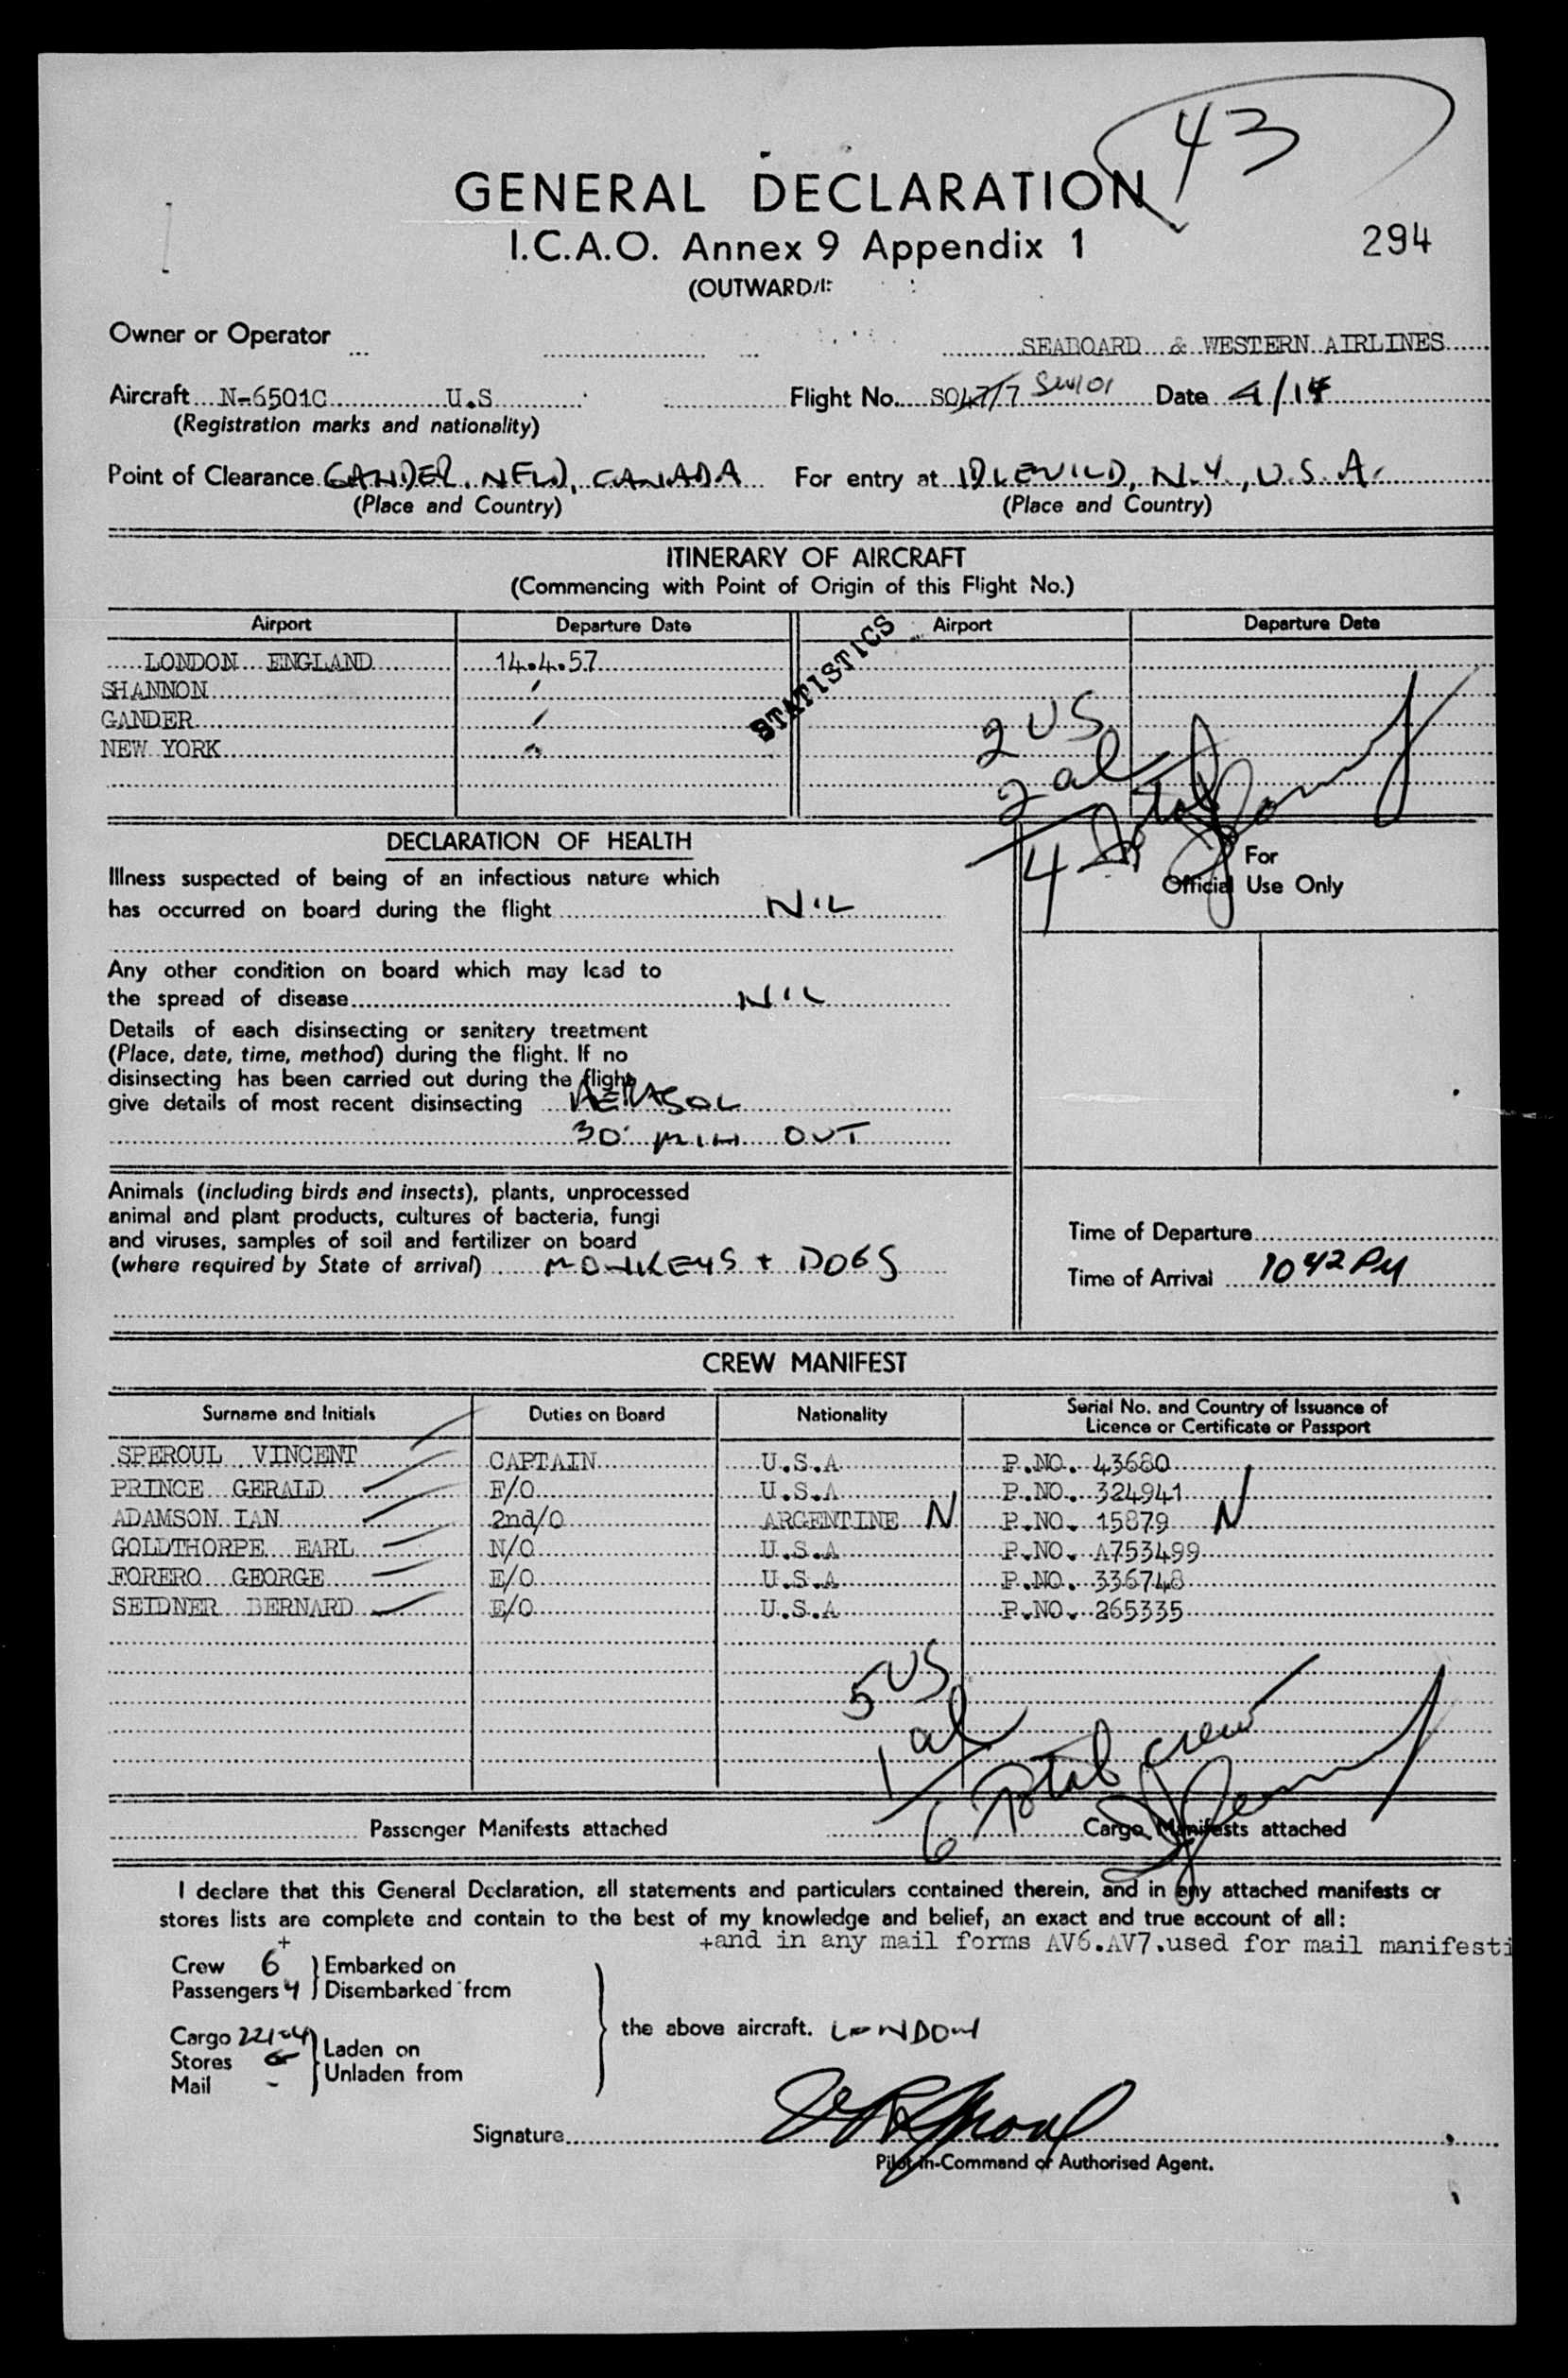 43
GENERAL DECLARATION
I.C.A.O. Annex 9 Appendix 1
294
(OUTWARD/I
Owner or Operator SEABOARD & WESTERN AIRLINES
Aircraft N-6501C U.S Flight No. SO SW101 Date 4/14
(Registration marks and nationality)
Point of Clearance GANDER. NFLD, CANADA For entry at IDLEWILD, N.Y., U.S.A.
(Place and Country) (Place and Country)
ITINERARY OF AIRCRAFT
(Commencing with Point of Origin of this Flight No.)
Airport Departure Date Airport Departure Date
STATISTICS
LONDON ENGLAND 14.4.57
SHANNON
GANDER
NEW YORK
2 US
2 al
4 Total
DECLARATION OF HEALTH
For
Official Use Only
Illness suspected of being of an infectious nature which
has occurred on board during the flight NIL
Any other condition on board which may lead to
the spread of disease NIL
Details of each disinsecting or sanitary treatment
(Place, date, time, method) during the flight. If no
disinsecting has been carried out during the flight
give details of most recent disinsecting AERASOL
30 MIN OUT
Animals (including birds and insects), plants, unprocessed
animal and plant products, cultures of bacteria, fungi
and viruses, samples of soil and fertilizer on board
(where required by State of arrival) MONKEYS + DOGS
Time of Departure
Time of Arrival 1042 PM
CREW MANIFEST
Surname and Initials Duties on Board Nationality Serial No. and Country of Issuance of
Licence or Certificate or Passport
SPEROUL VINCENT CAPTAIN U.S.A P.NO. 43680
PRINCE GERALD F/O U.S.A P.NO. 324941
ADAMSON IAN 2nd/O ARGENTINE N P.NO. 15879 N
GOLDTHORPE EARL N/O U.S.A P.NO. A753499
FORERO GEORGE E/O U.S.A P.NO. 336748
SEIDNER BERNARD E/O U.S.A P.NO. 265335
5 US
1 al
6 Total crew
Passenger Manifests attached Cargo Manifests attached
I declare that this General Declaration, all statements and particulars contained therein, and in any attached manifests or
stores lists are complete and contain to the best of my knowledge and belief, an exact and true account of all:
+and in any mail forms AV6.AV7.used for mail manifesti
+
Crew 6 Embarked on
Passengers 4 Disembarked from
the above aircraft. LONDON
Cargo Laden on
Stores Unladen from
Mail -
Signature
Pilot-in-Command or Authorised Agent.